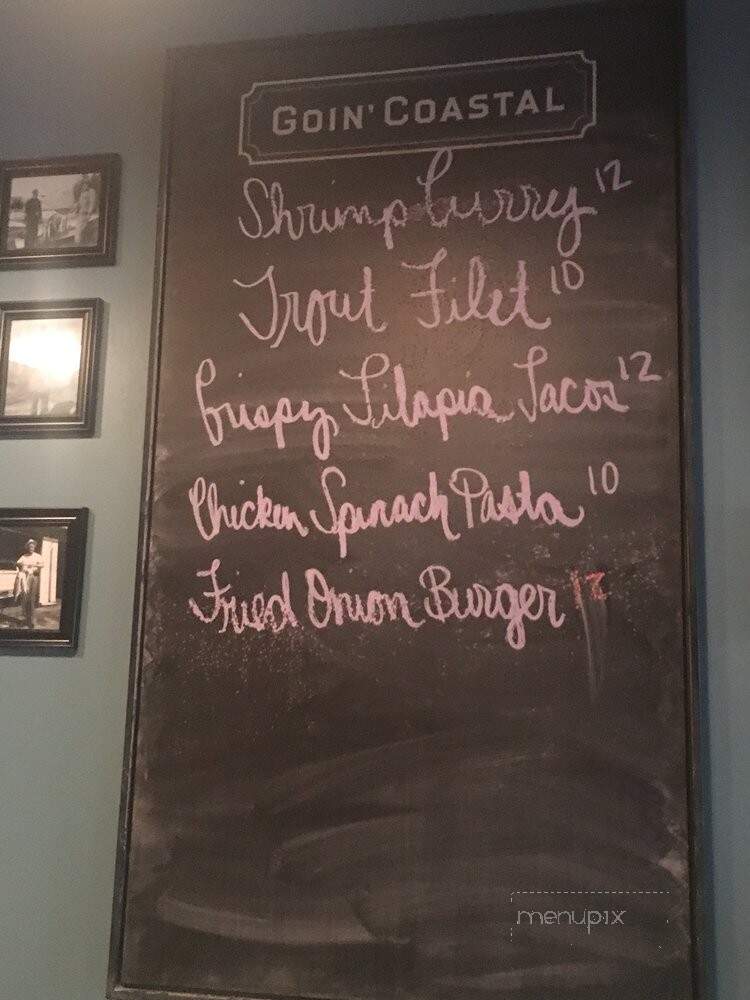 GOIN' COASTAL
Shrimp Curry 12
Trout Filet 10
Crispy Tilapia Tacos 12
Chicken Spinach Pasta 10
Fried Onion Burger 12
menupix